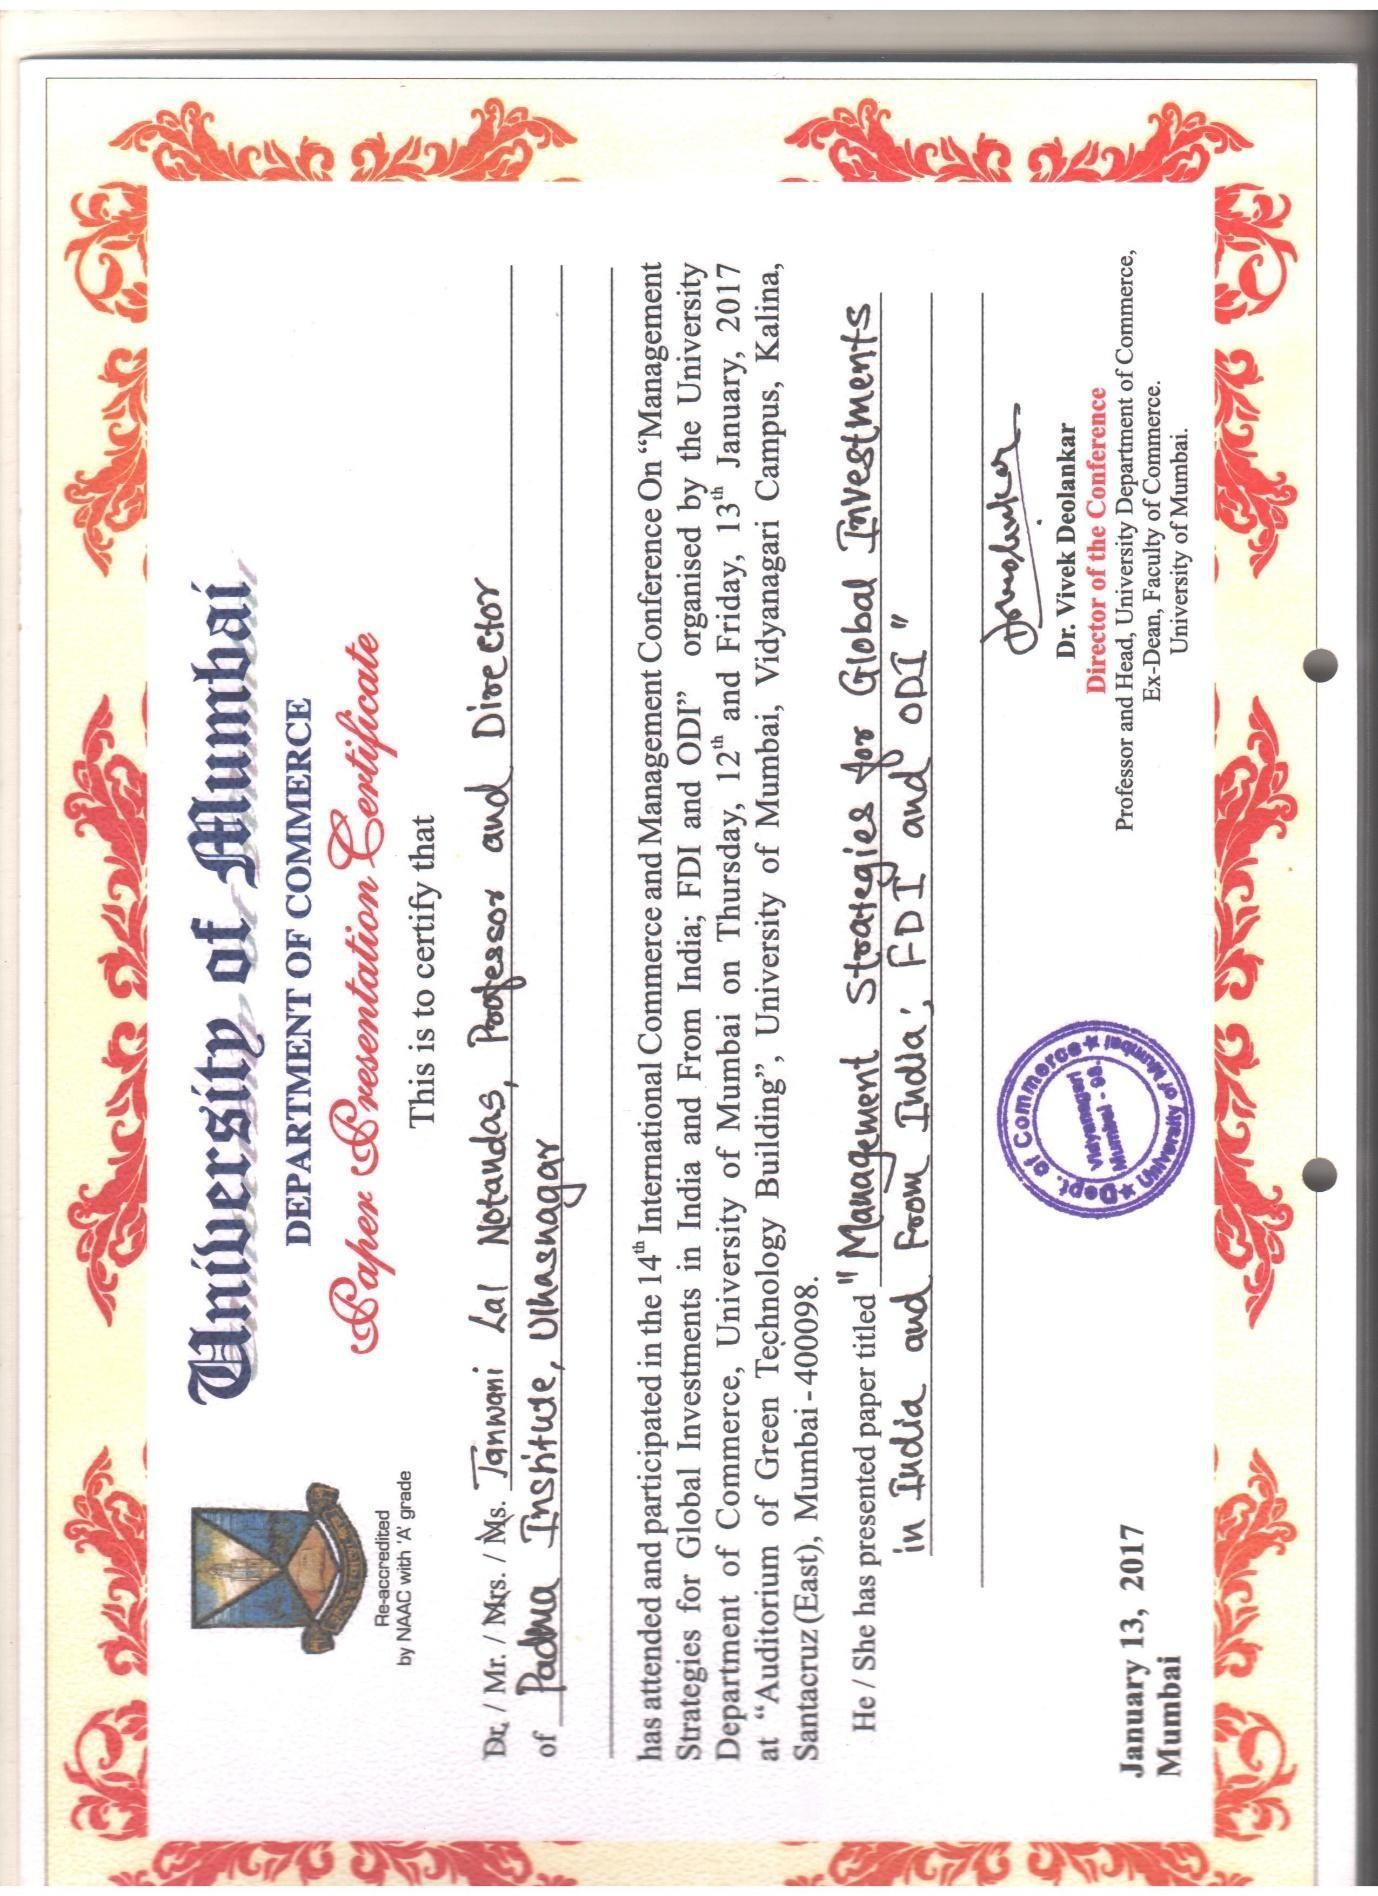 University of Mumbai
DEPARTMENT OF COMMERCE
Paper Presentation Certificate
Re-accredited
by NAAC with 'A' grade
This is to certify that
Dr. / Mr. / Mrs. / Ms. Tanwani Lal Notandas, Professor and Director
of Padma Institute, Ulhasnagar
has attended and participated in the 14th International Commerce and Management Conference On "Management
Strategies for Global Investments in India and From India; FDI and ODI" organised by the University
Department of Commerce, University of Mumbai on Thursday, 12th and Friday, 13th January, 2017
at "Auditorium of Green Technology Building", University of Mumbai, Vidyanagari Campus, Kalina,
Santacruz (East), Mumbai - 400098.
He / She has presented paper titled "Management Strategies for Global Investments
in India and From India; FDI and ODI"
Dept. of Commerce
University of Mumbai
Vidyanagari
Mumbai - 98.
Dr. Vivek Deolankar
Director of the Conference
Professor and Head, University Department of Commerce,
Ex-Dean, Faculty of Commerce.
University of Mumbai.
January 13, 2017
Mumbai